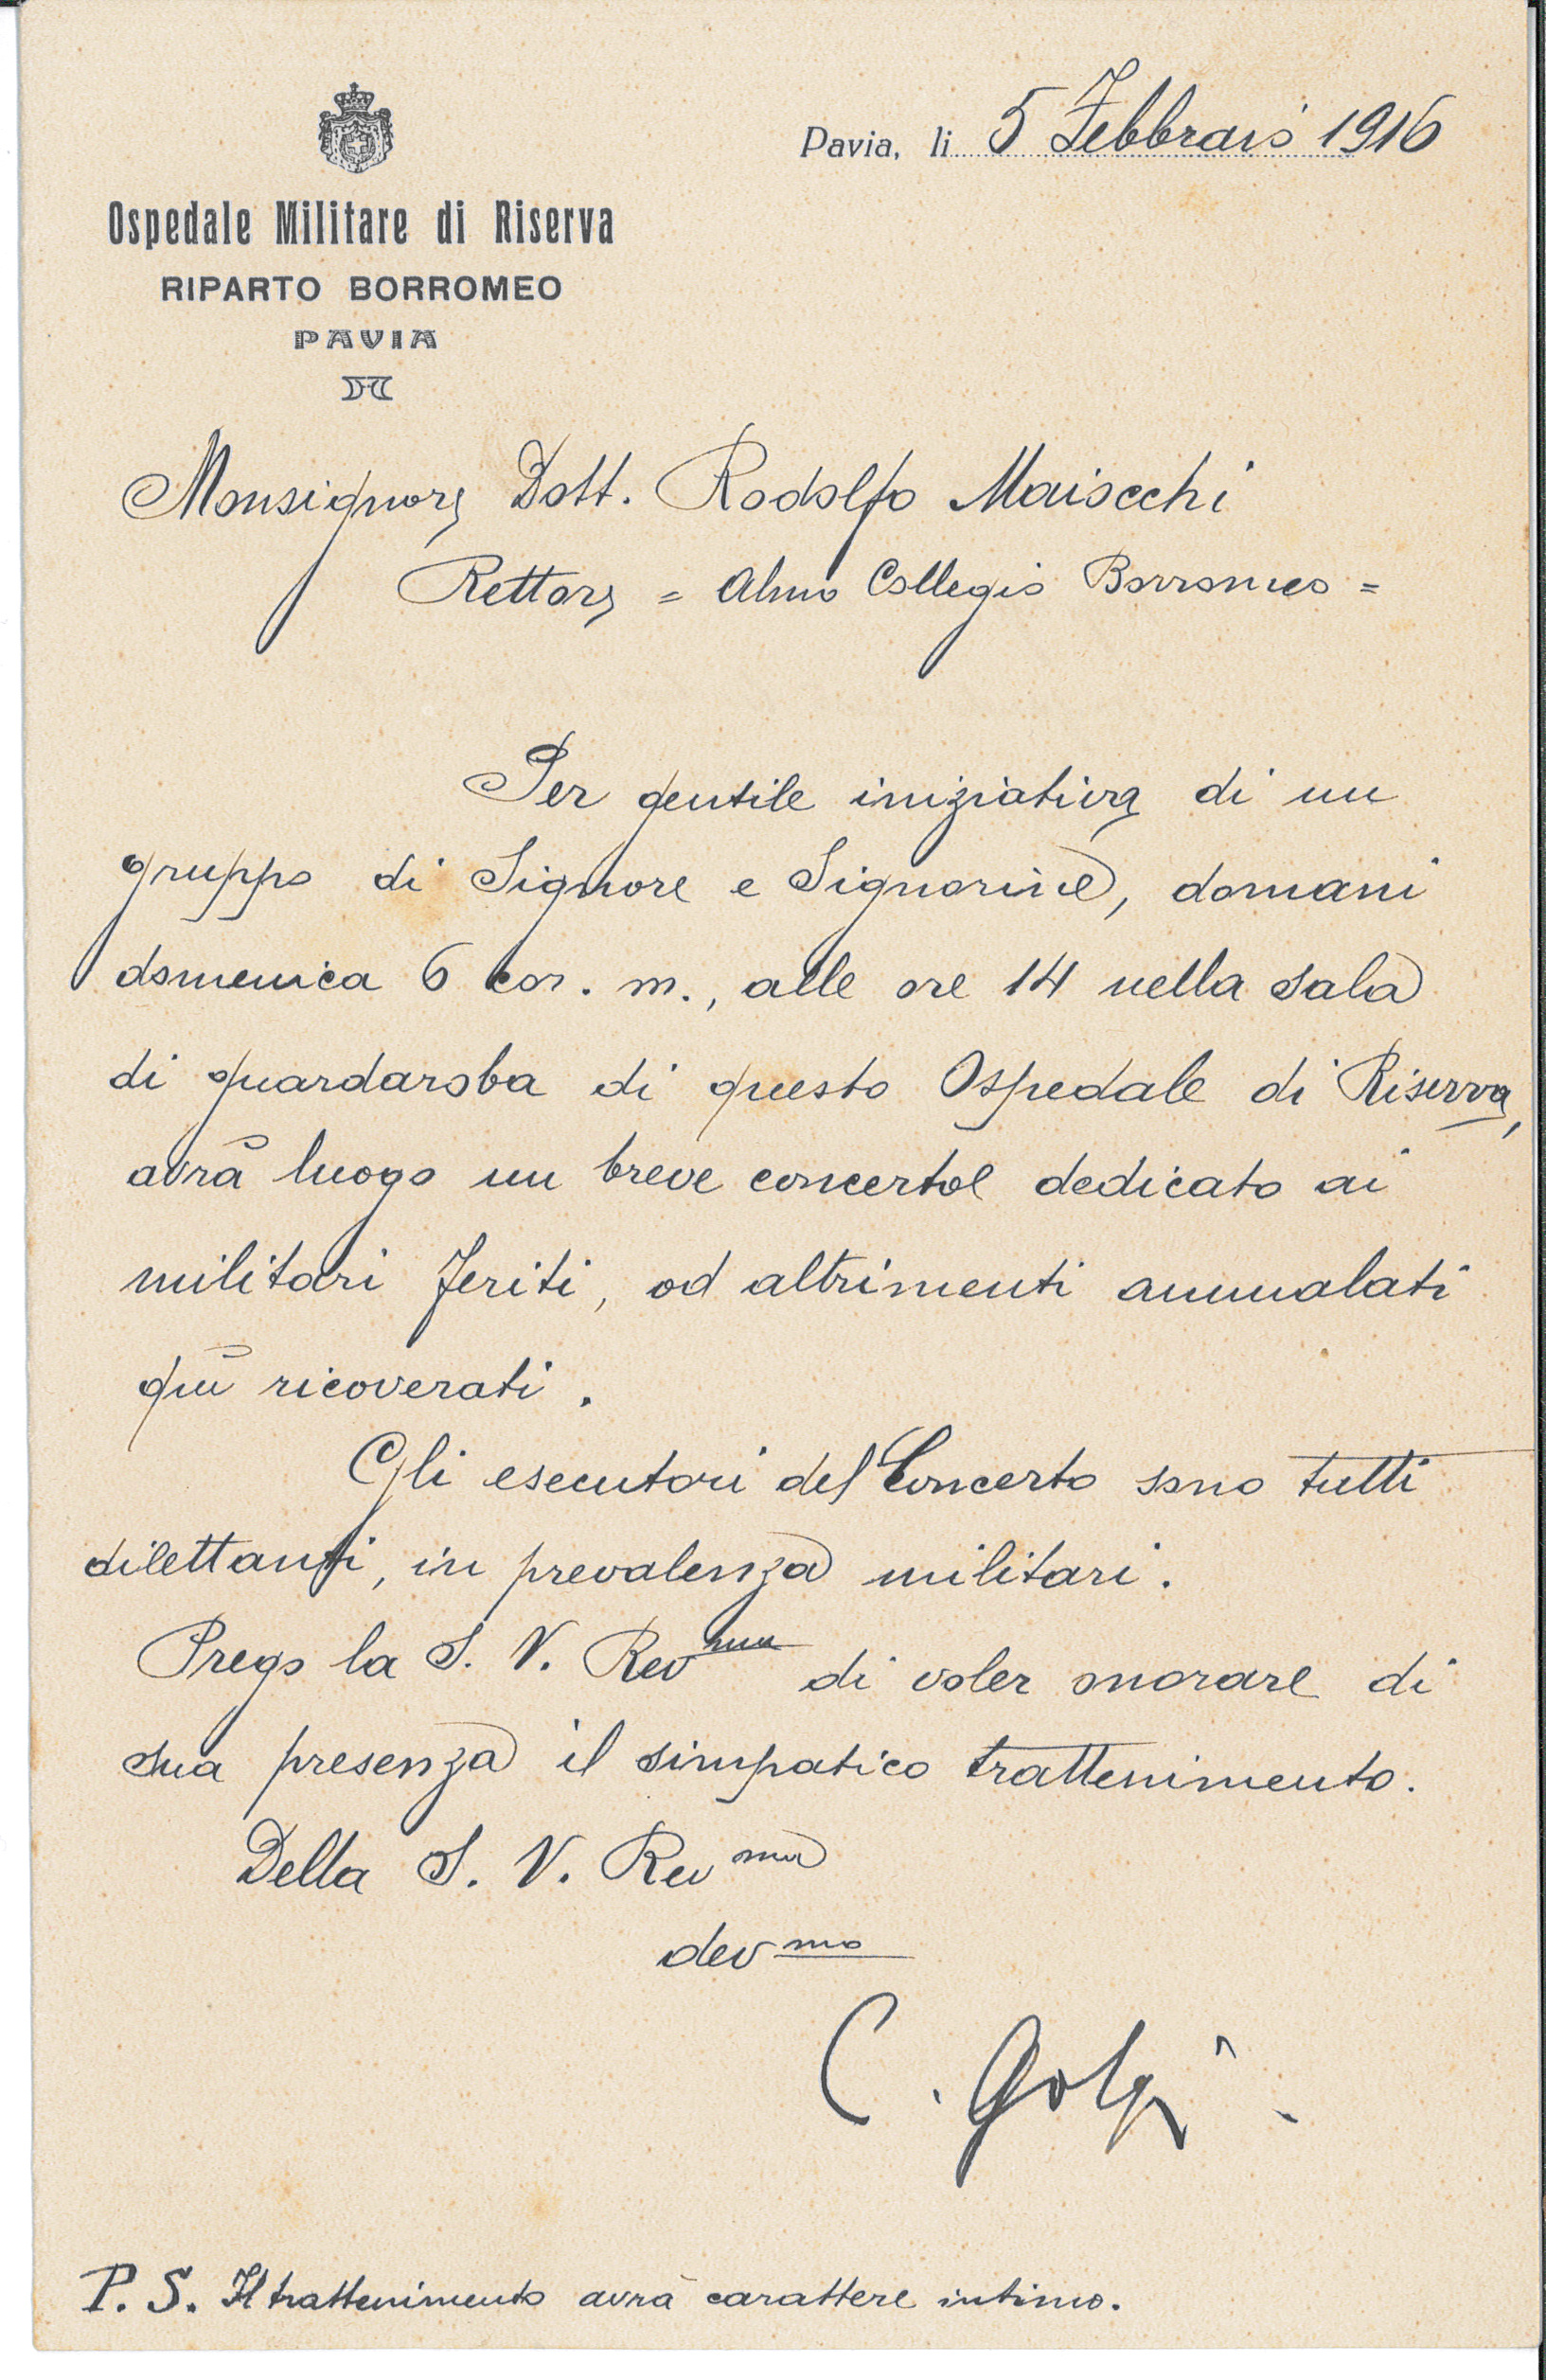 Pavia, li 5 Febbraio 1916
Ospedale Militare di Riserva
RIPARTO BORROMEO
PAVIA
Monsignore Dott. Rodolfo Maiocchi
Rettore = Almo Collegio Borromeo =
Per gentile iniziativa di un
gruppo di Signore e Signorine, domani
domenica 6 cor. m., alle ore 14 nella sala
di guardaroba di questo Ospedale di Riserva,
avrà luogo un breve concerto dedicato ai
militari feriti, od altrimenti ammalati
quì ricoverati.
Gli esecutori del Concerto sono tutti
dilettanti, in prevalenza militari.
Prego la S. V. Rev ma di voler onorare di
sua presenza il simpatico trattenimento.
Della S. V. Rev ma
dev mo
C. Golgi
P. S. Il trattenimento avrà carattere intimo.